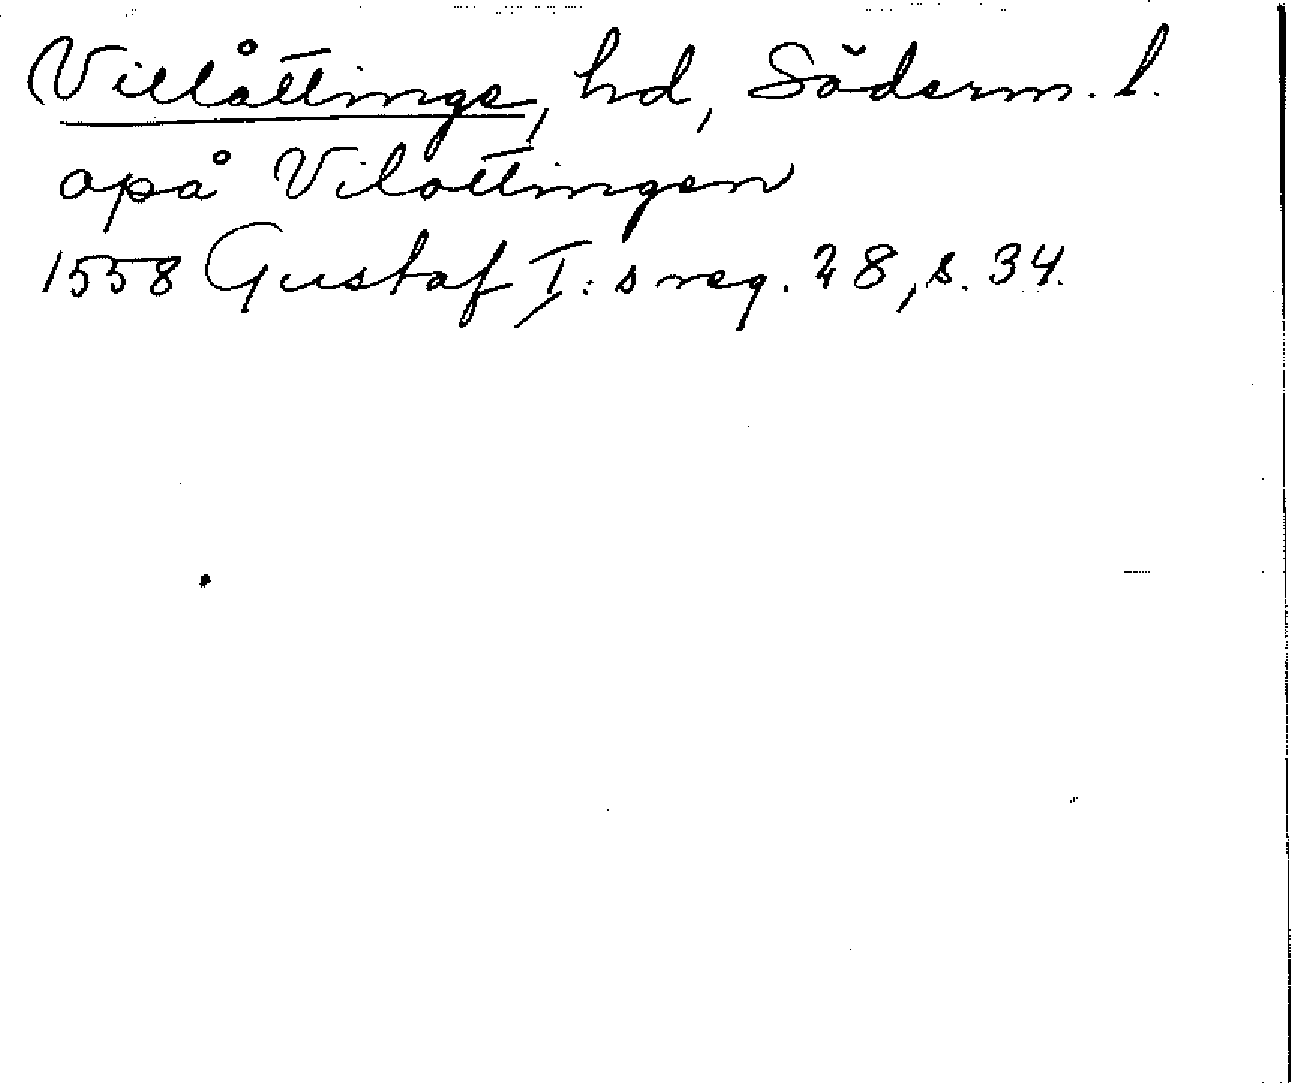 Villåttinge, hd, Söderm. l.
opå Vilottingen
1558 Gustaf I:s reg. 28, s. 34.